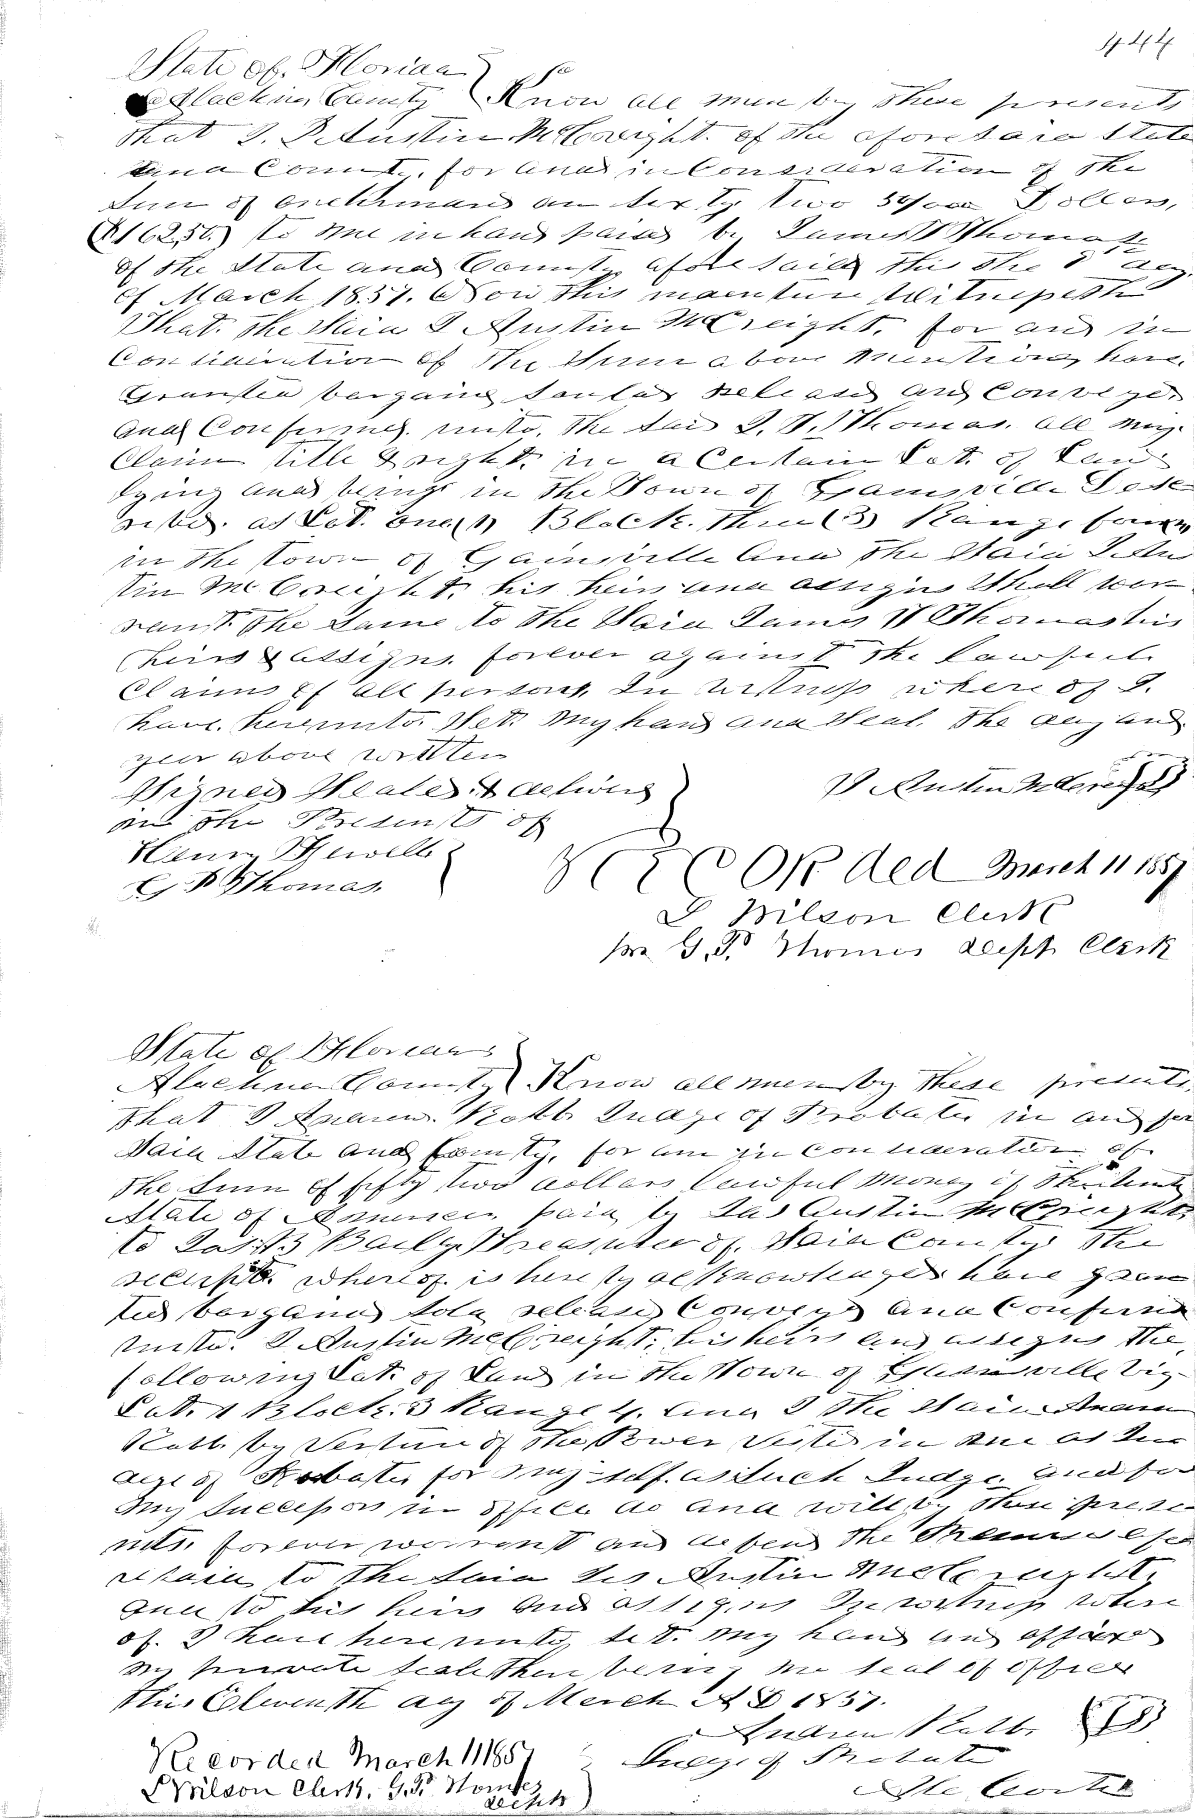 444
State of Florida
Alachua County Know all men by these presents
that I P Austin McCreight. of the aforesaid State
and County, for and in Consideration of the
Sum of one hundred an sixty two 50/100 Dollars,
($162,50.) to me in hand paid by James Thomas
of the State and County afore said this the day
of March 1857. Now this indenture Witnesseth
That. the Said I Austin McCreight. for and in
Consideration of the Sum above mentioned have.
Granted bargained Released and Conveyed
and Confirmed. unto. the Said J. H. Thomas. all my.
Claim title & right. in a Certain Lot. of Land
lying and being in the Town of Gainsville Desc
ribed. as Lot. one (1) Block. three (3) Range four
in the town of Gainsville And the Said I. Aus
tin McCreight. his heirs and assigns Shall war
rant. the Same to the Said James H Thomas his
heirs & assigns. forever against the lawful
Claims of all persons, In Witness where of I.
have. hereunto. Set. my hand and Seal. the day and
year above written
Signed Sealed & delivered
in the Presents of
P Austin McCreight
Henry
G P Thomas.
Recorded March 11 1857
L Wilson Clerk
per G. P. Thomas Dept. Clerk
State of Florida
Alachua County Know all men by these presents,
that I Andrew. Judge of Probate in and for
Said State and County, for and in consideration of
the Sum of fifty two dollars lawful money of the United
State of America paid by Jas Austin McCreight.
to Jas. B Baily Treasurer of. Said County the
receipt. whereof. is hereby acknowledged have gran
ted bargained sold released Conveyed and Confirmed
unto. I Austin McCreight. his heirs and assigns the
following Lot. of Land in the Town of Gainsville viz-
Lot. 1 Block. 3 Range 4. And I the Said Andrew
by Vertue of the Power Vested in me as Ju
dge of Probate for my self. as Such Judge. and for
my Successors in office do and will by these prese
nts. forever warrant and defend the Premises afo
resaid to the Said Jas Austin McCreight.
and to his heirs and assigns In witness where
of. I have here unto set. my hand and affixed
my private seal there being no seal of office
this Eleventh day of March A D 1857.
Andrew
Judge of Probate
Recorded March 11 1857
L Wilson Clerk. G. P. Thomas
Dept